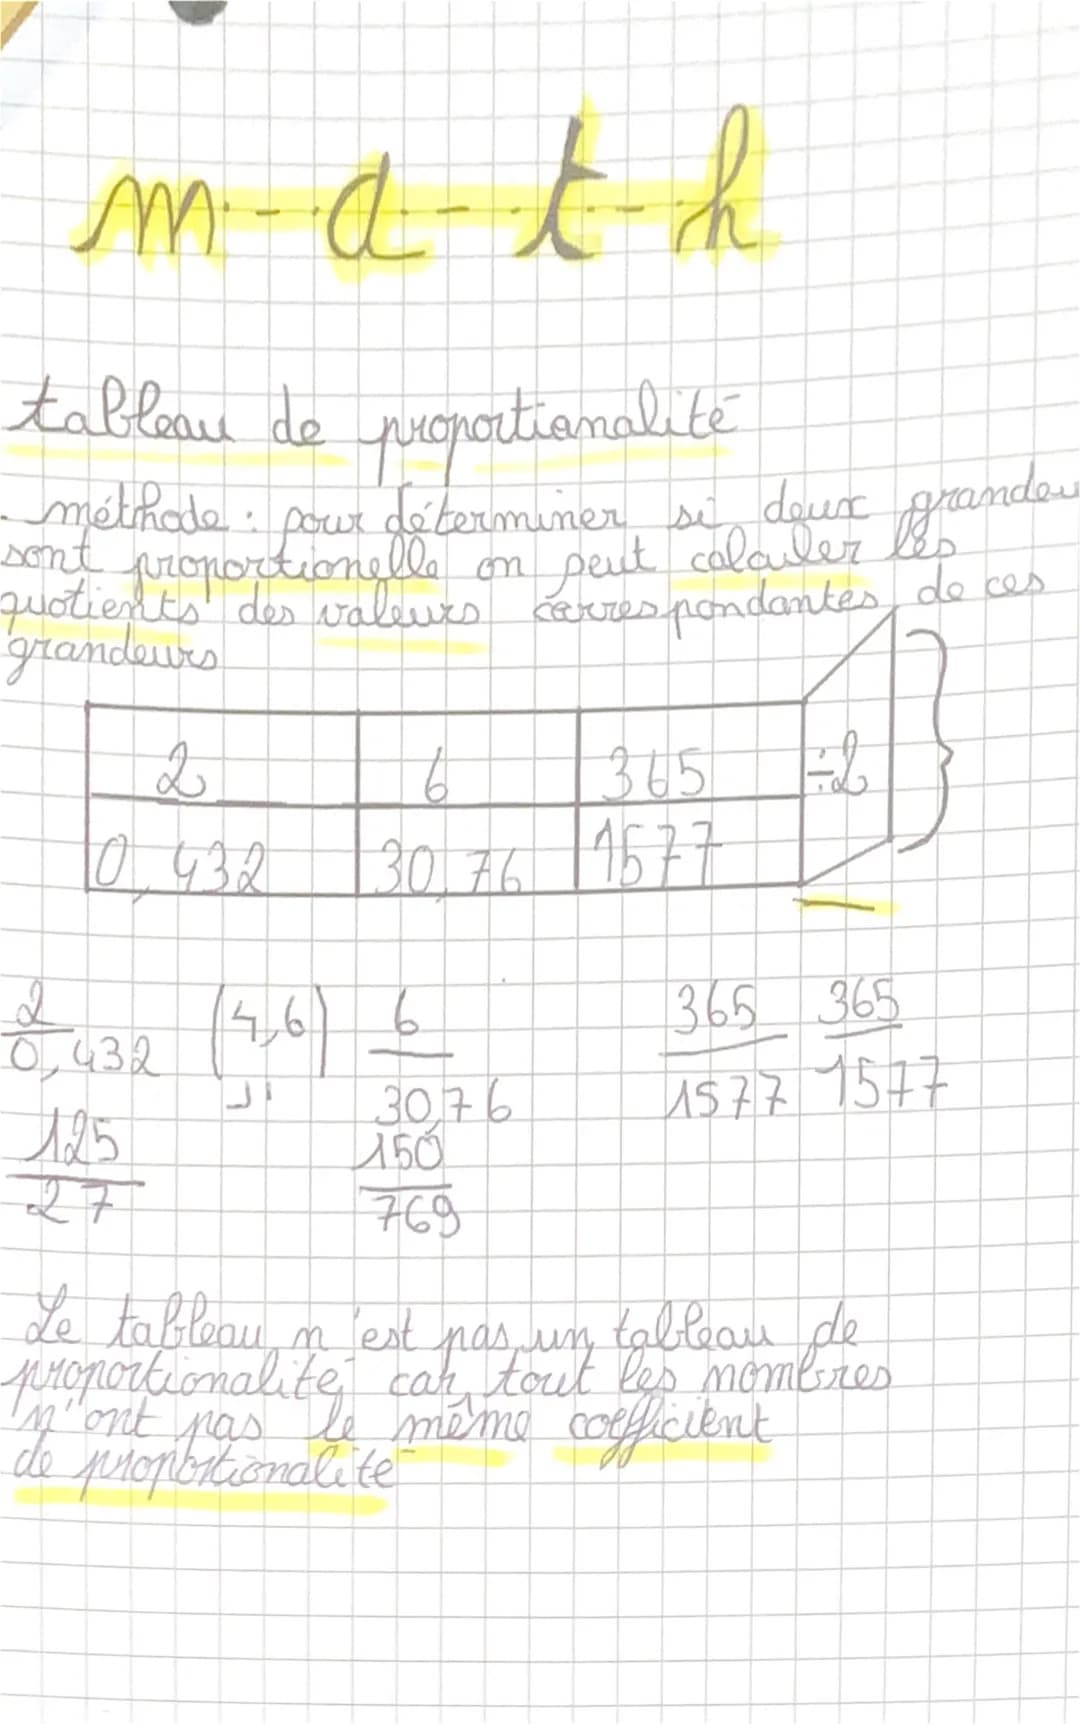 m - a - t - h
tableau de proportionalité
- méthode : pour déterminer si deux grandeu
sont proportionelle on peut calculer les
quotients des valeurs correspondantes de ces
grandeurs
2 6 365 ÷2
0,432 30,76 1577
2/0,432 (4,6) 6/30,76 365/1577 365/1577
125/27 150/769
Le tableau n'est pas un tableau de
proportionalité car tout les nombres
n'ont pas le même coefficient
de proportionalité